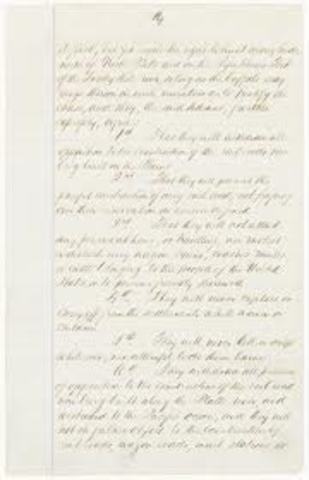 of said, but yet reserve the right to hunt on any lands
north of North Platte and on the Republican Fork
of the Smoky Hill river, so long as the buffalo may
range thereon in such numbers as to justify the
chase, and they, the said Indians, further
expressly agree:
1st That they will withdraw all
opposition to the construction of the rail roads now
being built on the Plains.
2nd That they will permit the
peaceful construction of any rail road, not passing
over their reservation as herein defined.
3rd That they will not attack
any persons at home, or travelling, nor molest
or disturb any wagon trains, coaches, mules
or cattle belonging to the people of the United
States, or to persons friendly therewith.
4th They will never capture or
carry off from the settlements white women or
children.
5th They will never kill or scalp
white men, nor attempt to do them harm.
6th They withdraw all pretence
of opposition to the construction of the rail road
now being built along the Platte river, and
westward to the Pacific ocean, and they will
not in future object to the construction of
rail roads, wagon roads, mail stations or